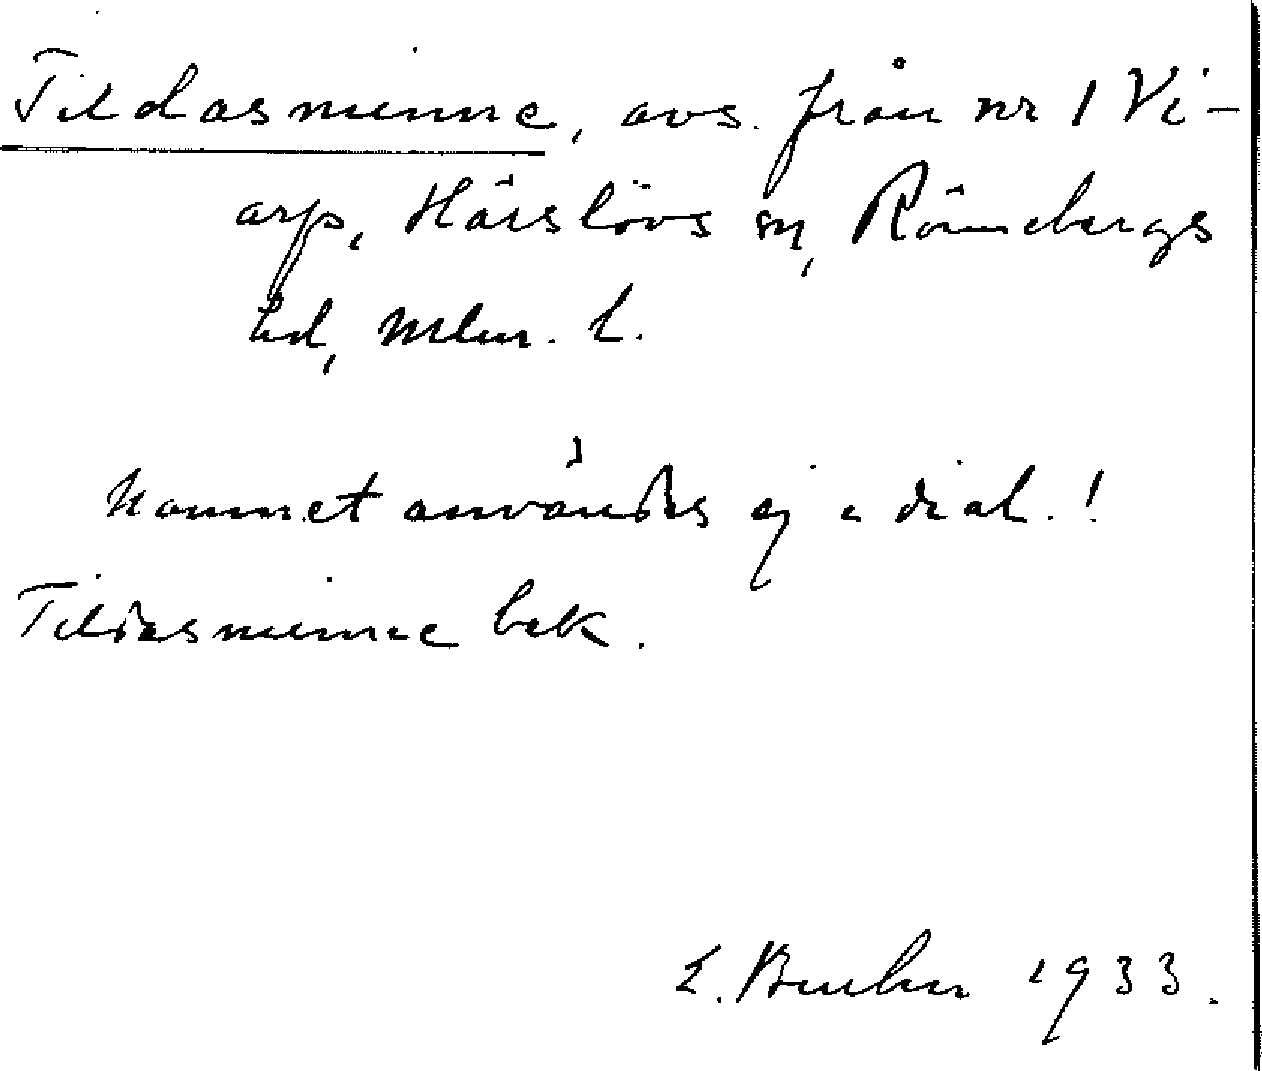 Tildasminne, avs. från nr 1 Vi-
arp, Härslövs sn, Rönnebergs
hd, Mlm. l.
Namnet användes ej i dial.!
Tildasminne bek.
1933.